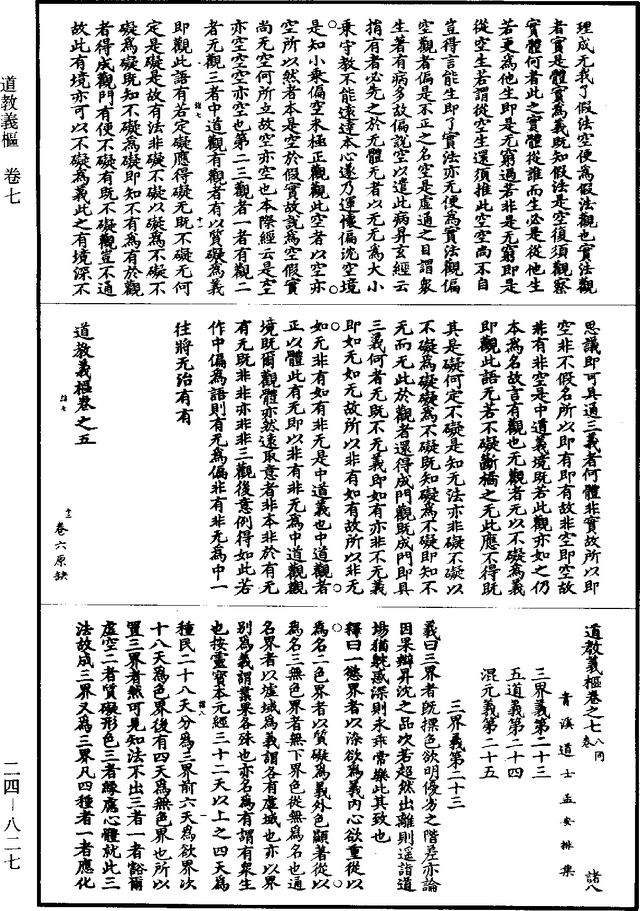 道教義樞 卷七
理成无我了假法空便為假法觀也實法觀
者實是體實為義既知假法是空復須觀察
實體何者此之實體從誰而生必是從他生
若更為他生即是无窮過若非是无窮即是
從空生若謂從空生還須推此空空尚不自
豈得言能生即了實法亦无便為實法觀偏
空觀者偏是不正之名空是虛通之目謂眾
生著有病多故偏說空以遣此病昇玄經云
損有者必先之於无體无者以无无為大小
乘守教不能遠達本心遂乃運懷偏沈空境
是知小乘偏空未極正觀觀此空者以空亦
空所以然者本是空於假實故說為空假實
尚无空何所立故空亦空也本際經云是空
亦空空空亦空也第二三觀者一者有觀二
者无觀三者中道觀有觀者有以質礙為義
即觀此語有若定礙應得礙无既不礙无何
定是礙是故有法非礙不礙以礙為不礙不
礙為礙既知不礙為礙即知不有為有於觀
者得成觀門有便不礙有既不礙觀豈不通
故此有境亦可以不礙為義此之有境深不
諸七
十一
思議即可具通三義者何體非實故所以即
空非不假名所以即有即有故非空即空故
非有非空是中道義境既若此觀亦如之仍
本為名故言有觀也无觀者无以不礙為義
即觀此語无若不礙斷橋之无此應不得既
其是礙何定不礙是知无法亦非礙不礙以
不礙為礙礙為不礙既知礙為不礙即知不
无而无此於觀者還得成門觀既成門即具
三義何者无既不无義即如有亦非不无義
即如无如无故所以非有如有故所以非无
如无非有如有非无是中道義也中道觀者
正以體此有无即以非有非无為中道觀觀
境既爾觀體亦然遠取意者非本非於有无
有无既非非亦非非三觀後意例得如此若
作中偏為語則有无為偏非有非无為中一
往將无治有有
道教義樞卷之五
諸七
十二
卷六原缺
道教義樞卷之七 八同卷
諸八
青溪道士孟安排集
三界義第二十三
五道義第二十四
混元義第二十五
三界義第二十三
義曰三界者既標色欲明優劣之階差亦論
因果辯昇沈之品次若超然出離則遥詣道
場猶躭惑深則永非常樂此其致也
釋曰一慾界者以染欲為義内心欲重從以
為名二色界者以質礙為義外色顯著從以
為名三無色界者無下界色從無為名也通
名界者以墟域為義謂各有慮域也亦以界
別為義謂業果各殊也亦名為有謂有衆生
也按靈寶本元經三十二天以上之四天為
種民二十八天分為三界前六天為欲界次
十八天為色界後有四天為無色界也所以
置三界者然可見知法不出三者一者豁爾
虛空二者質礙形色三者緣慮心體就此三
法故成三界又為三界凡四種者一者應化
諸八
一
二四—八二七